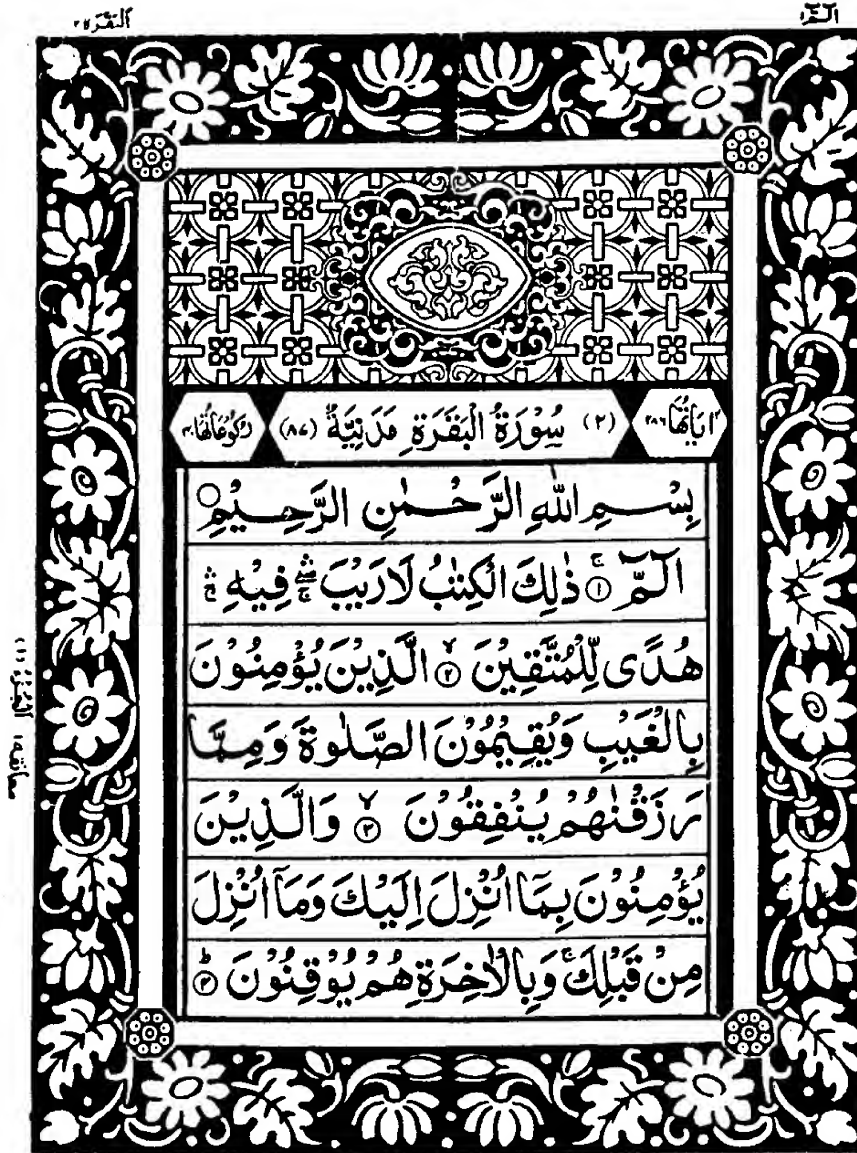 الٓمّٓ ١
البقرة ٢
اٰیَاتُهَا ٢٨٦
(٢) سُوْرَةُ الْبَقَرَةِ مَدَنِيَّةٌ (٨٧)
رُكُوْعَاتُهَا ٤٠
بِسْمِ اللّٰهِ الرَّحْمٰنِ الرَّحِيْمِ
الٓمّٓ ۚ ① ذٰلِكَ الْكِتٰبُ لَا رَيْبَ ۛۚ فِيْهِ ۛۚ
هُدًى لِّلْمُتَّقِيْنَ ۙ ② الَّذِيْنَ يُؤْمِنُوْنَ
بِالْغَيْبِ وَيُقِيْمُوْنَ الصَّلٰوةَ وَمِمَّا
رَزَقْنٰهُمْ يُنْفِقُوْنَ ۙ ③ وَالَّذِيْنَ
يُؤْمِنُوْنَ بِمَآ اُنْزِلَ اِلَيْكَ وَمَآ اُنْزِلَ
مِنْ قَبْلِكَ ۚ وَبِالْاٰخِرَةِ هُمْ يُوْقِنُوْنَ ؕ ④
معانقه ١